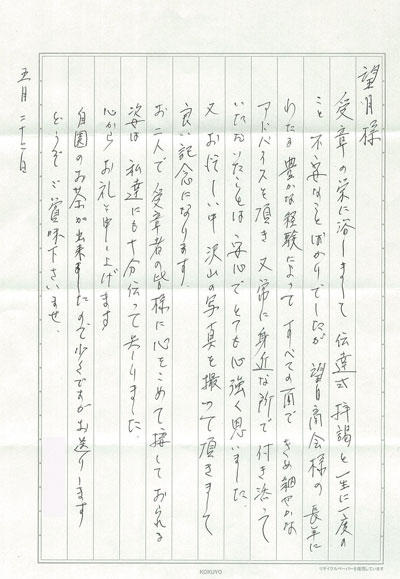 望月様
受章の栄に浴しまして 伝達式 拝謁と一生に一度の
こと 不安なことばかりでしたが 望月商会様の長年に
わたる豊かな経験によって すべての面で きめ細やかな
アドバイスを頂き 又常に身近な所で付き添って
いただいたことは 安心で とても心強く思いました
又お忙しい中 沢山の写真を撮って頂きまして
良い記念になります
お二人で受章者の皆様に心をこめて接しておられる
姿は 私達にも十分伝って参りました
心からお礼を申し上げます
自園のお茶が出来ましたので少しですがお送りします
どうぞ ご賞味下さいませ。
五月二十二日
KOKUYO
リサイクルペーパーを使用しています